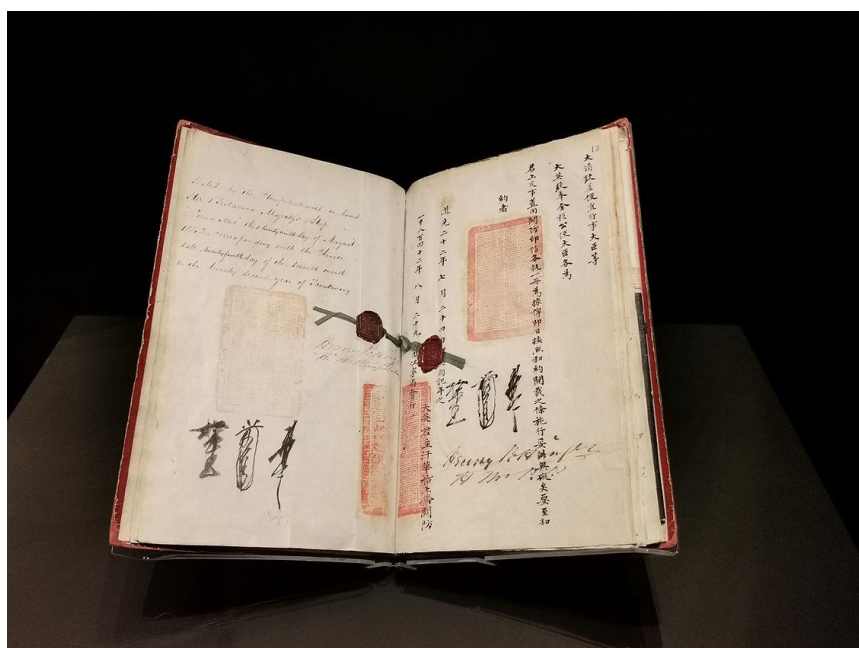 Sealed by the Plenipotentiaries on board
Her Britannic Majesty's Ship
"Cornwallis" this twenty ninth day of August
1842, corresponding with the Chinese
date, twenty fourth day of the seventh month
in the twenty second year of Taoukwang
Henry Pottinger
大清欽差便宜行事大臣等
大英欽奉全權公使大臣各為
君上定事蓋用關防印信各執一冊為據俾即日按照和約開載之條施行妥辦無礙矣要至和
約者
道光二十二年七月二十四日即英國記年之
一千八百四十二年八月二十九日由江寧省會行
大英君主汗華船上鈐關防
Henry Pottinger